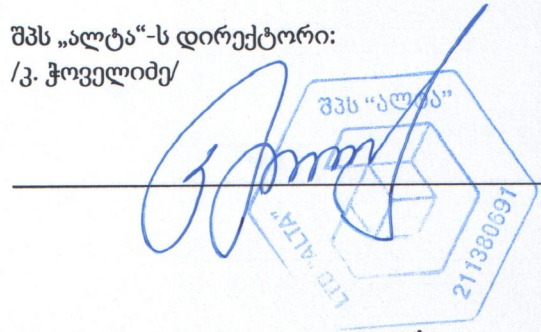 შპს „ალტა“-ს დირექტორი:
/კ. ჭოველიძე/
შპს “ალტა”
LTD “ALTA”
211380691